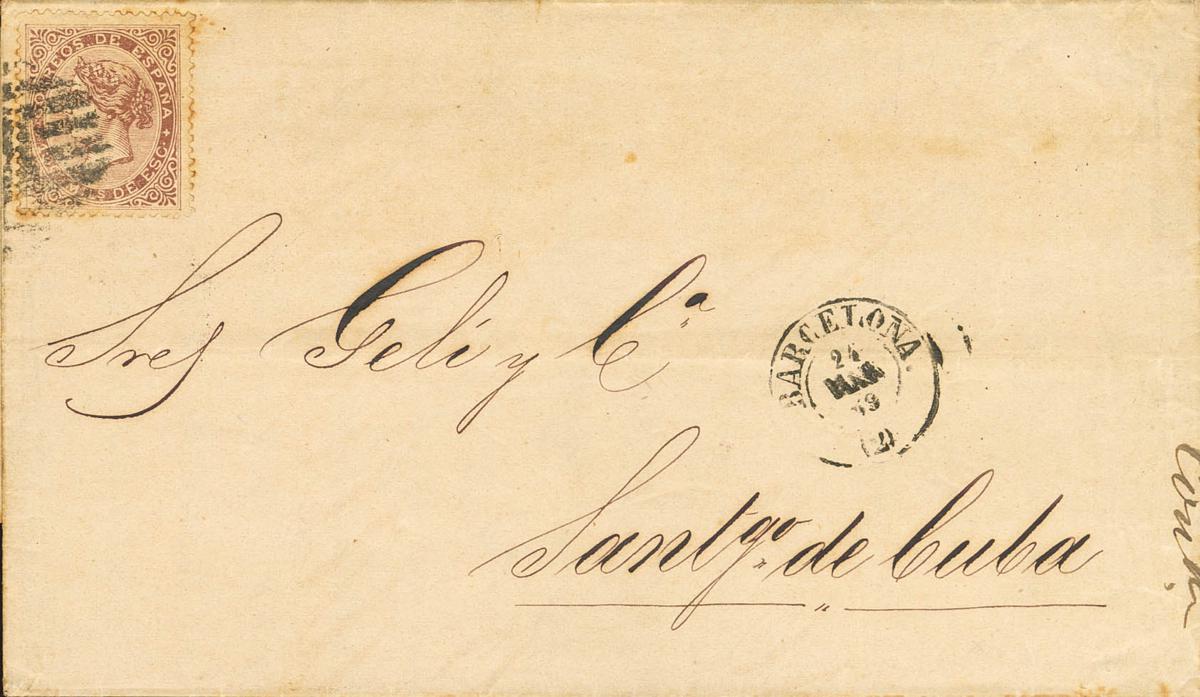 CORREOS DE ESPAÑA
DE ESC.
Sres Geli y Cª
BARCELONA
24
MAR
69
(2)
Santgº de Cuba